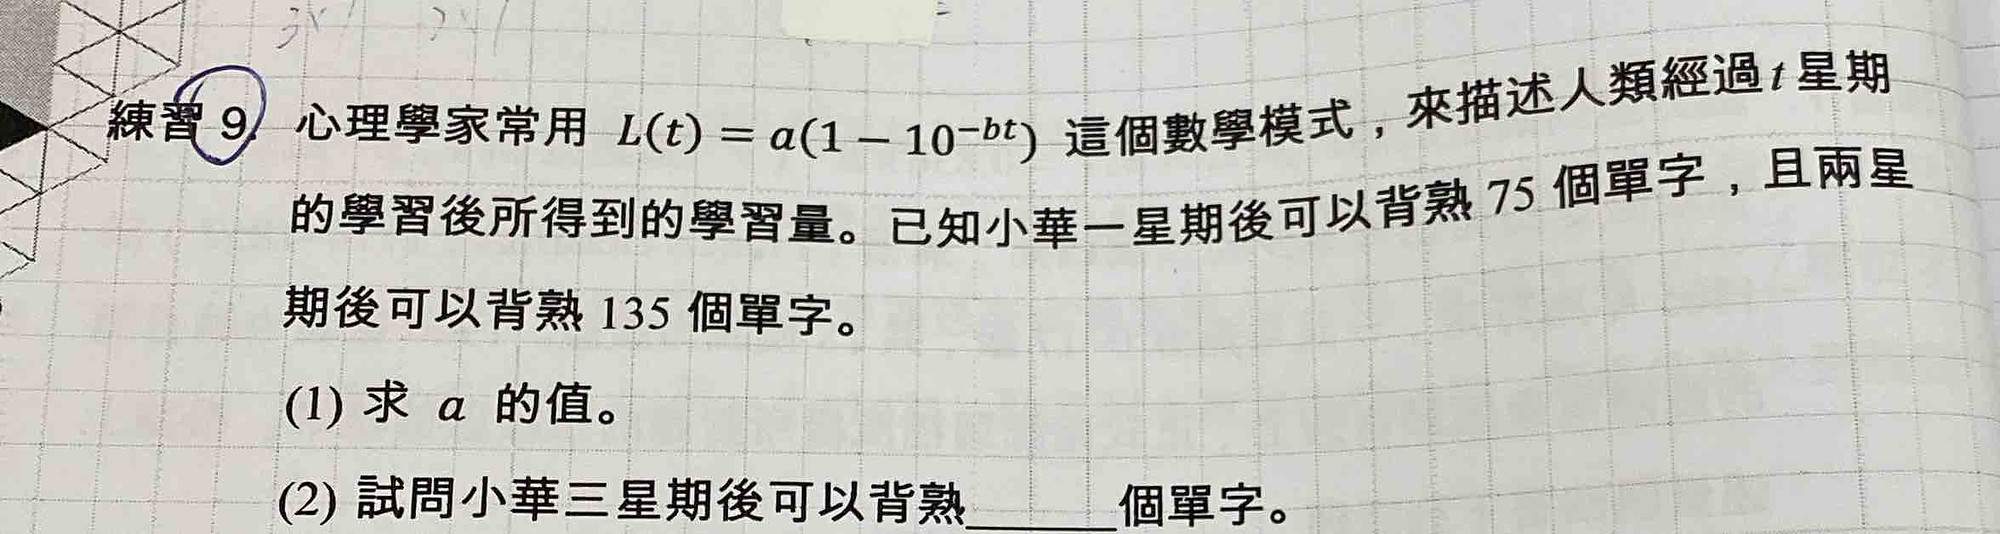 練習 9. 心理學家常用 L(t) = a(1 − 10^{−bt}) 這個數學模式，來描述人類經過 t 星期
的學習後所得到的學習量。已知小華一星期後可以背熟 75 個單字，且兩星
期後可以背熟 135 個單字。
(1) 求 a 的值。
(2) 試問小華三星期後可以背熟______個單字。